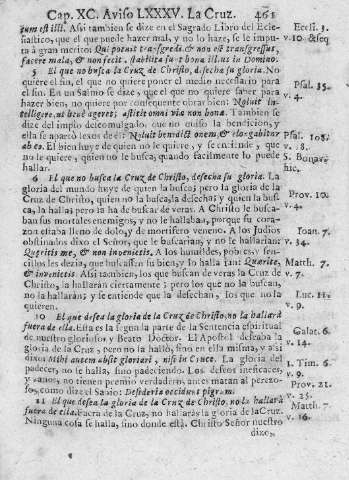 Cap. XC. Aviso LXXXV. La Cruz. 461
tum est illi. Assi tambien se dize en el Sagrado Libro del Ecle- Eccli. 3.
siastico, que el que puede hazer mal, y no lo haze, se le imputa v. 10. & seq
à gran merito: Qui potuit transgredi, & non est transgressus,
facere mala, & non fecit, stabilita sunt bona illius in Domino.
5 El que no busca la Cruz de Christo, desecha su gloria. No
quiere el fin, el que no quiere poner el medio necessario para
el fin. En un Salmo se dize, que el que no quiere saber para Psal. 35.
hazer bien, no quiere por consequente obrar bien: Noluit in- v. 4.
telligere, ut bene ageret; astitit omni via non bona. Tambien se
dize del impio descomulgado, que no quiso la bendicion, y
ella se apartò lexos de èl: Noluit benedictionem, & elongabitur Psal. 108.
ab eo. El bien huye de quien no le quiere, y se entiende, que v. 18.
no le quiere, quien no le busca, quando facilmente lo puede S. Bonave
hallar. hic.
6 El que no busca la Cruz de Christo, desecha su gloria. La
gloria del mundo huye de quien la busca; pero la gloria de la Prov. 10.
Cruz de Christo, quien no la busca, la desecha; y quien la bus- v. 4.
ca, la halla; pero la ha de buscar de veras. A Christo le busca-
ban sus mortales enemigos, y no le hallaban, porque su cora-
zon estaba lleno de dolo, y de mortifero veneno. A los Judios Ioan. 7.
obstinados dixo el Señor, que le buscarian, y no le hallarian: v. 34.
Quæritis me, & non invenietis. A los humildes, pobres, y sen-
cillos les dezia, que buscassen su bien, y lo hallarian: Quærite, Matth. 7.
& invenietis. Assi tambien, los que buscan de veras la Cruz de v. 7.
Christo, la hallaràn ciertamente; pero los que no la buscan,
no la hallaràn; y se entiende que la desechan, los que no la Luc. 11.
quieren. v. 9.
10 El que desea la gloria de la Cruz de Christo, no la hallarà
fuera de ella. Esta es la segunda parte de la Sentencia espiritual Galat. 6.
de nuestro glorioso, y Beato Doctor. El Apostol deseaba la v. 14.
gloria de la Cruz, pero no la hallò, sino en ella misma, y assi
dixo: Mihi autem absit gloriari, nisi in Cruce. La gloria del 1. Tim. 6.
padecer, no se halla, sino padeciendo. Los deseos ineficaces, v. 9.
y vanos, no tienen premio verdadero, antes matan al perezo- Prov. 21.
so, como dixo el Sabio: Desideria occidunt pigrum. v. 25.
11 El que desea la gloria de la Cruz de Christo, no la hallarà Matth.
fuera de ella. Fuera de la Cruz, no hallaràs la gloria de la Cruz. v. 16.
Ninguna cosa se halla, sino donde està. Christo Señor nuestro
dize,